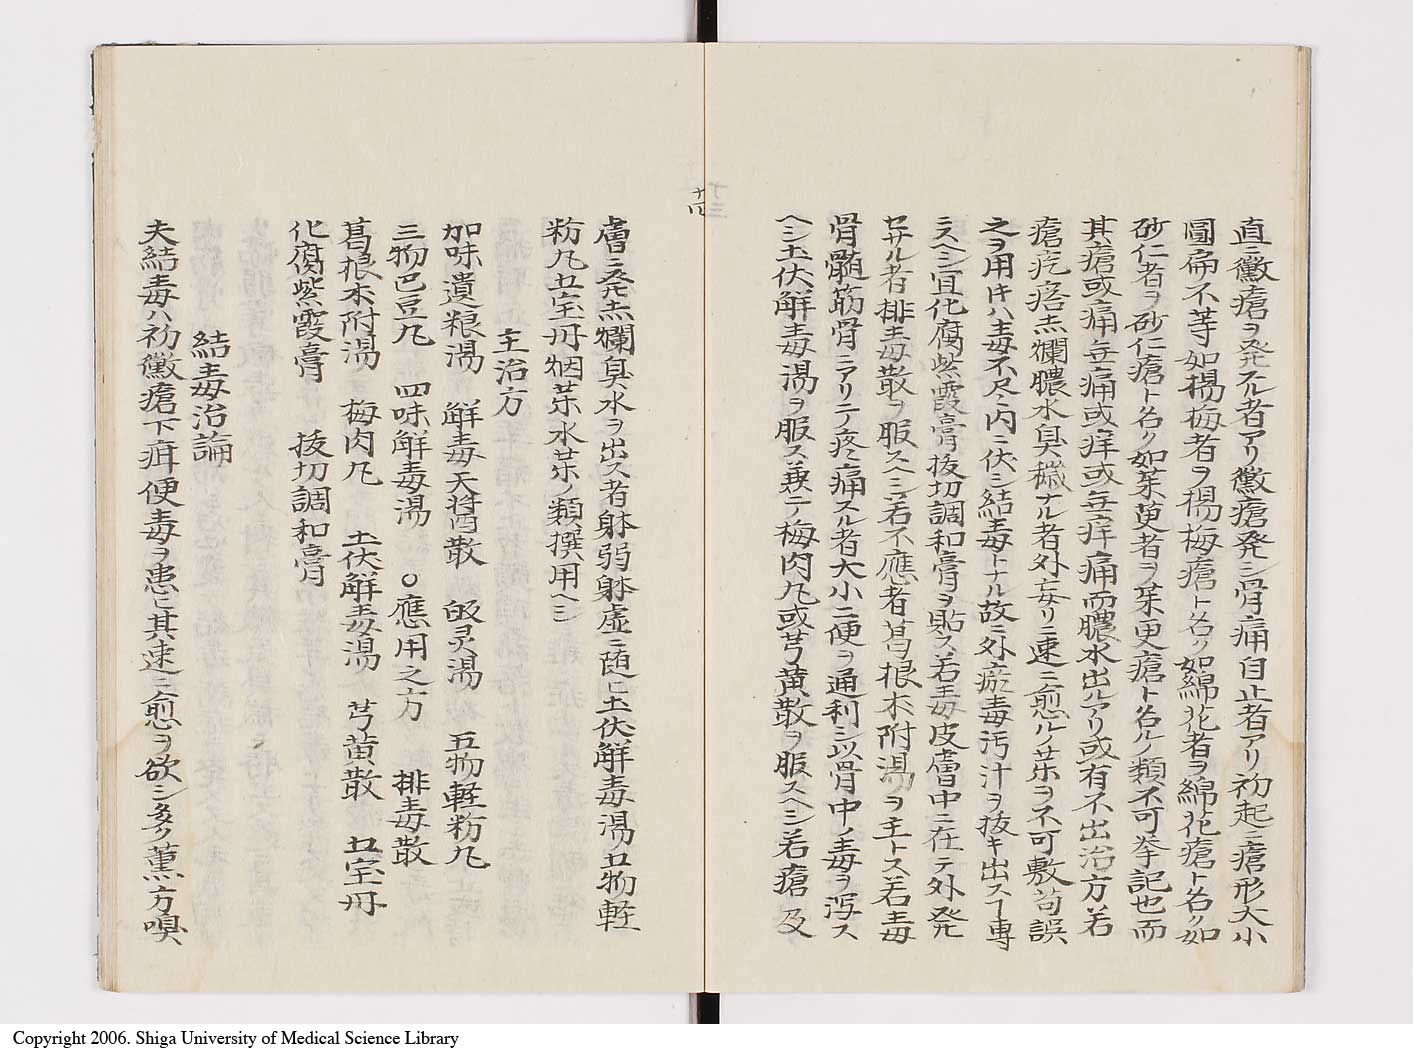 直ニ黴瘡ヲ発スル者アリ黴瘡発シ骨痛自止者アリ初起ニ瘡形大小
圓扁不等如楊梅者ヲ楊梅瘡ト名ク如綿花者ヲ綿花瘡ト名ク如
砂仁者ヲ砂仁瘡ト名ク如茱萸者ヲ茱萸瘡ト名クノ類不可挙記也而
其瘡或痛無痛或痒或無痒痛而膿水出ルアリ或有不出治方若
瘡疙瘩赤爛膿水臭穢ナル者外妄リニ速ニ愈ルノ薬ヲ不可敷苟誤
之ヲ用ヰハ毒不尽内ニ伏シ結毒トナル故ニ外瘀毒汚汁ヲ抜キ出スヿ専
ラスヘシ宜化腐紫霞膏抜切調和膏ヲ貼ス若毒皮膚中ニ在テ外発
セサル者排毒散ヲ服スヘシ若不應者葛根朮附湯ヲ主トス若毒
骨髄筋骨ニアリテ疼痛スル者大小二便ヲ通利シ以骨中ノ毒ヲ瀉ス
ヘシ土伏解毒湯ヲ服ス兼テ梅肉丸或芎黄散ヲ服スヘシ若瘡及
十四
膚ニ発赤爛臭水ヲ出ス者躰弱躰虚ニ随ヒ土伏解毒湯五物軽
粉丸五宝丹烟薬水薬ノ類撰用ヘシ
主治方
加味遺粮湯 解毒天漿散 皈灵湯 五物軽粉丸
三物巴豆丸 四味解毒湯 ○應用之方 排毒散
葛根朮附湯 梅肉丸 土伏解毒湯 芎黄散 五宝丹
化腐紫霞膏 抜切調和膏
結毒治論
夫結毒ハ初黴瘡下疳便毒ヲ患ヒ其速ニ愈ヲ欲シ多ク薫方嗅